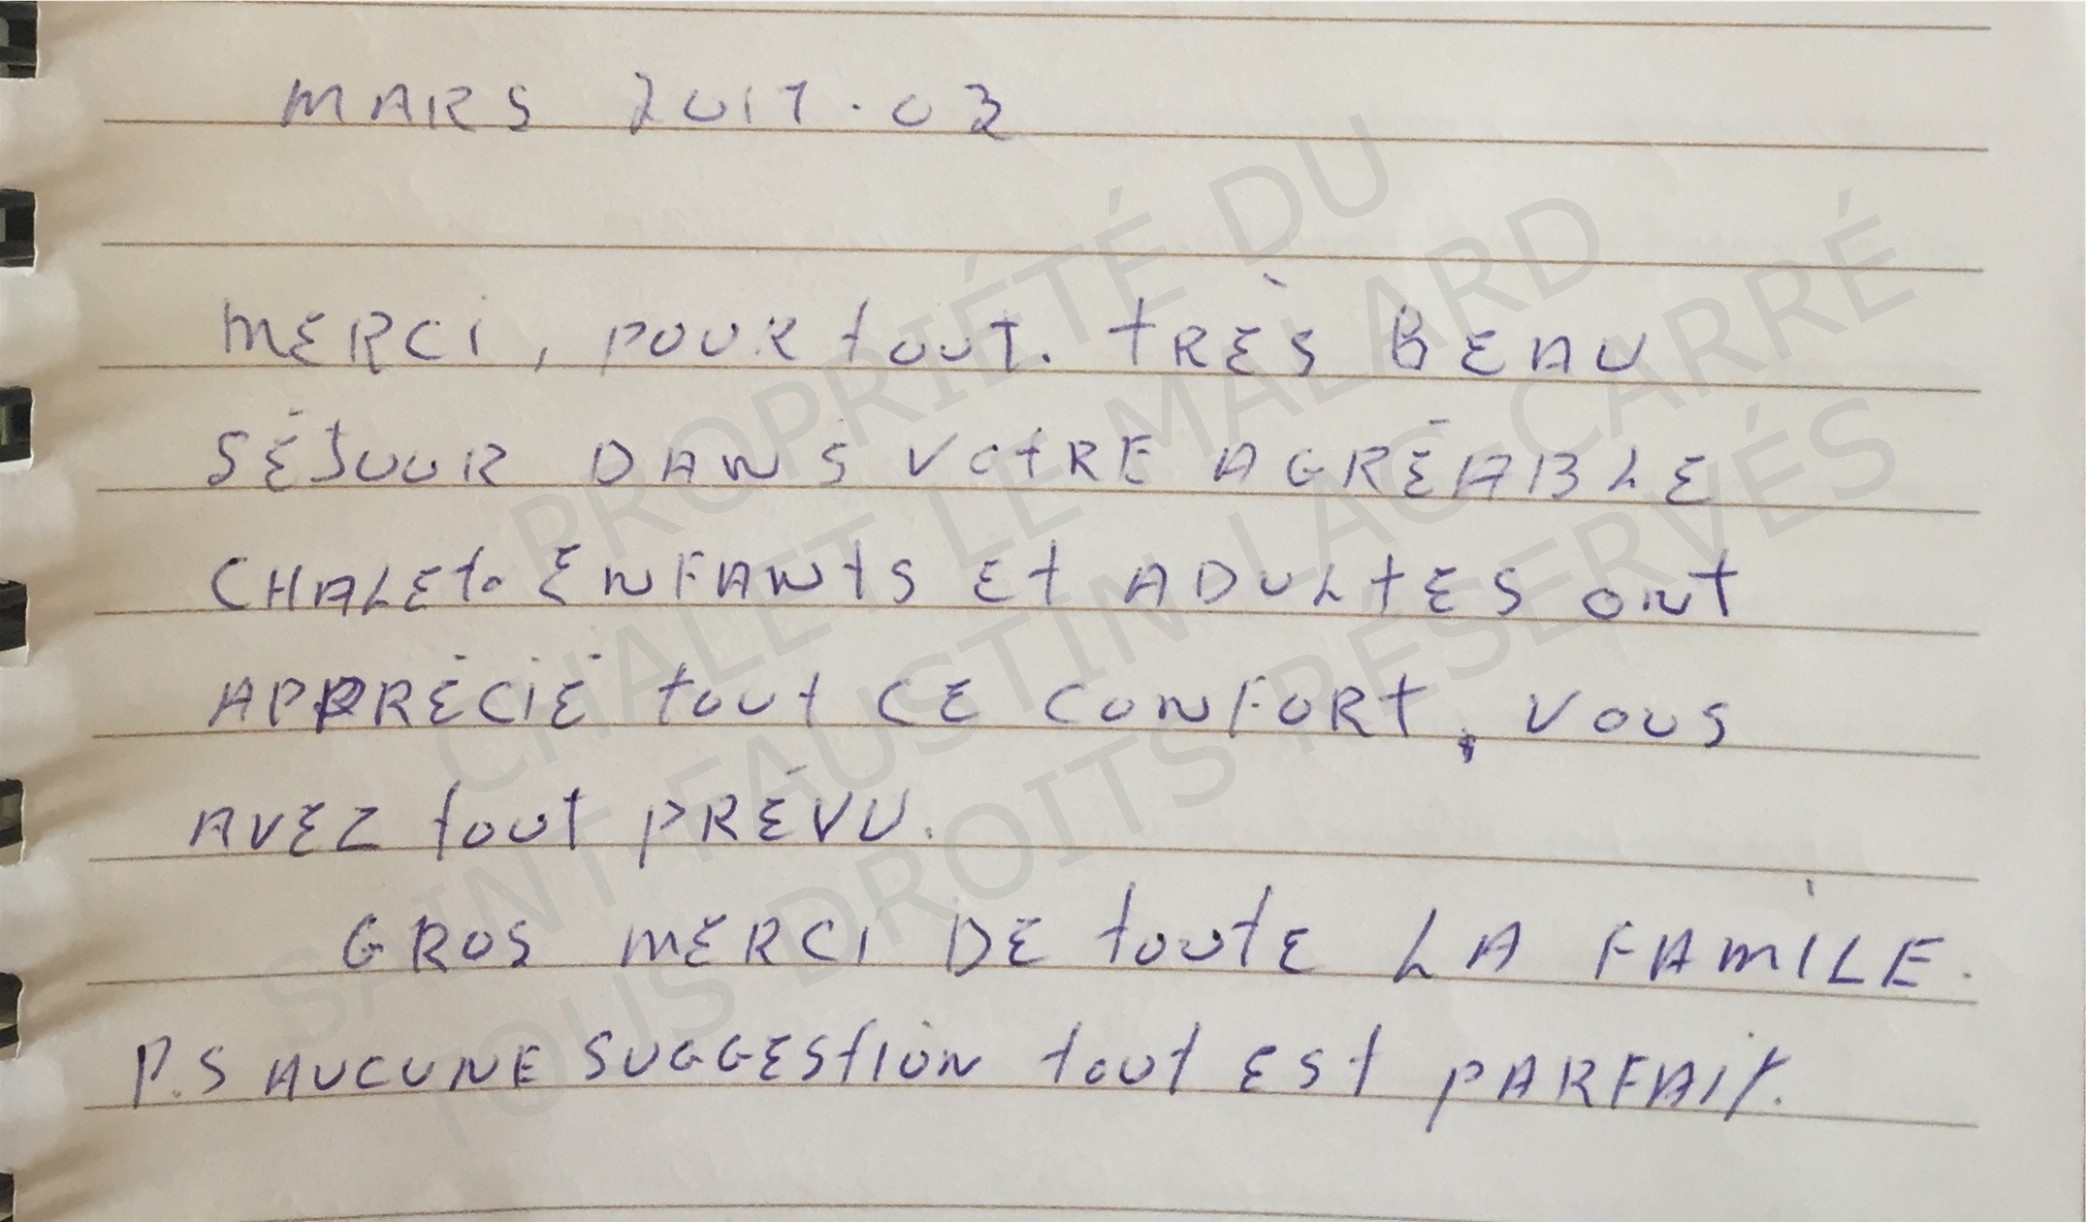 MARS 2017.03
MERCI, POUR tOUT. tRÈS BEAU
SÉJOUR DANS VOtRE AGRÉABLE
CHALEt. ENFANtS Et ADULtES ONt
APPRÉCIÉ tOUt CE CONFORt, VOUS
AVEZ tOUt PRÉVU.
GROS MERCI DE tOUtE LA FAMILE.
P.S AUCUNE SUGGEStION tOUt ESt PARFAIt.
PROPRIÉTÉ DU
CHALET LE MALARD
SAINT FAUSTIN LAC-CARRÉ
TOUS DROITS RÉSERVÉS